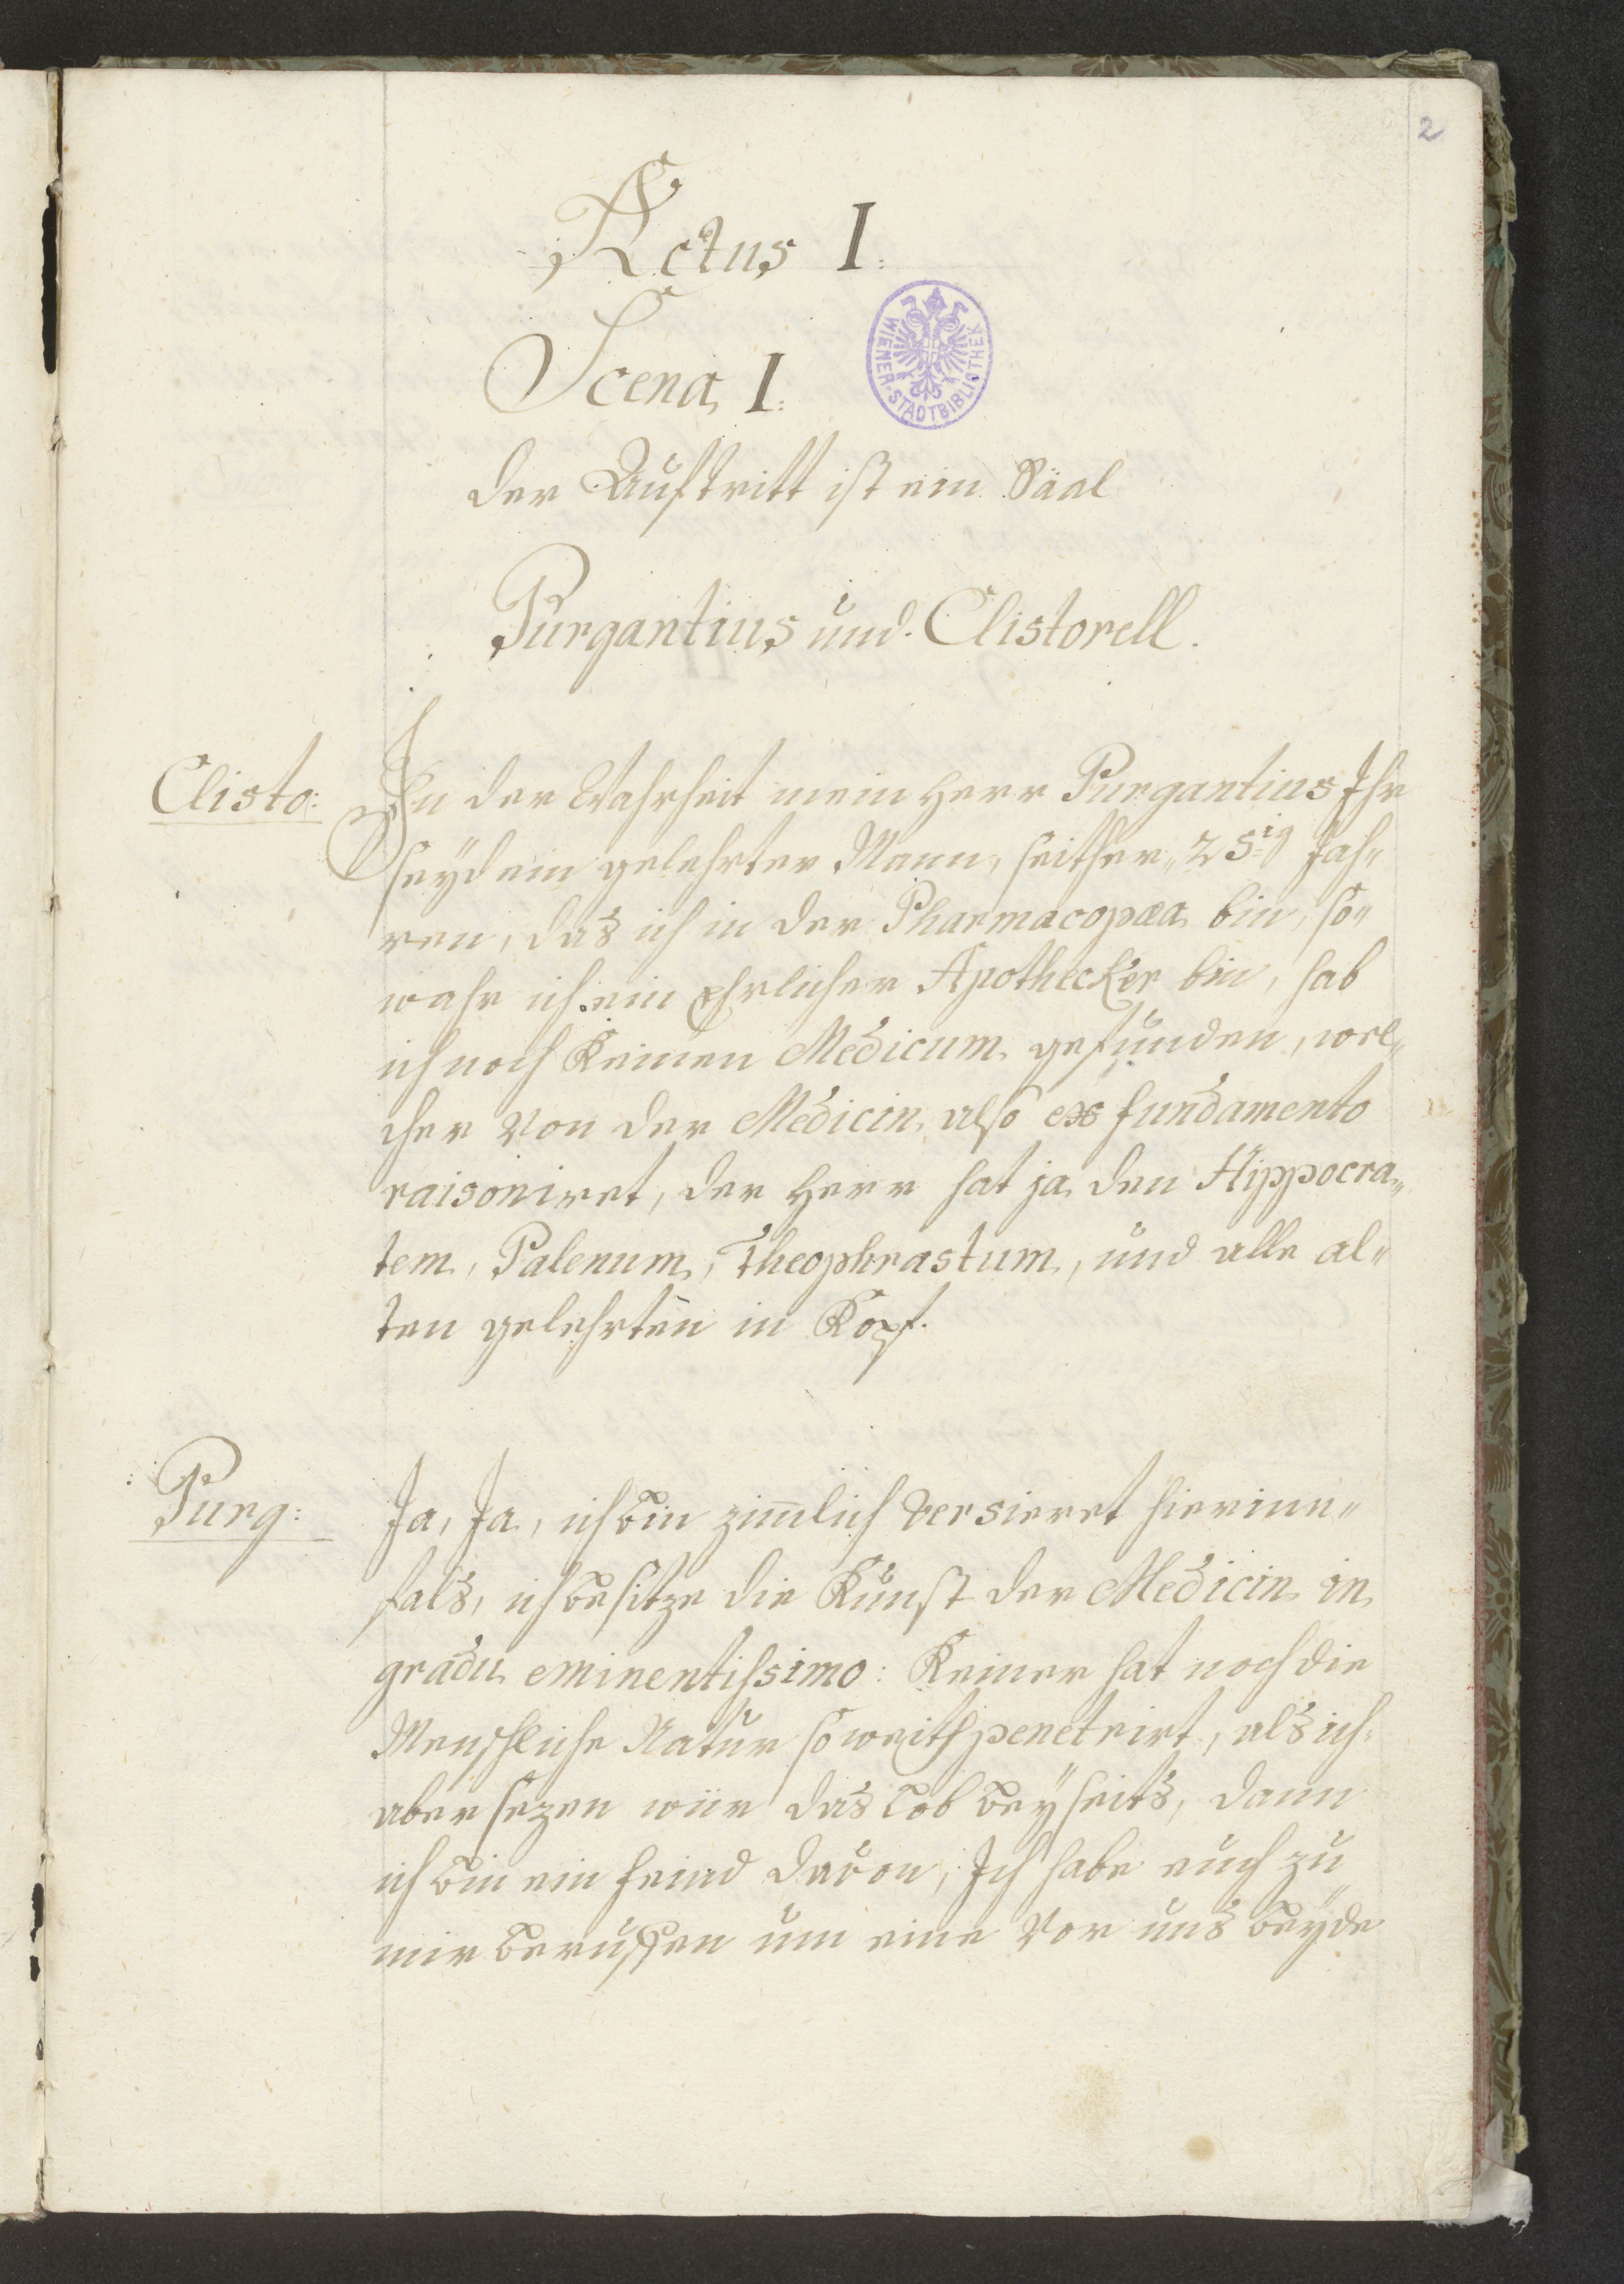 2
Actus I:
Scena I:
WIENER-STADTBIBLIOTHEK
der Auftritt ist ein Säal
Purgantius und Clistorell.
Clisto: In der Wahrheit mein Herr Purgantius Ihr
seyd ein gelehrter Mann, seither 25ig Jah„
ren, daß ich in der Pharmacopæa bin, so„
wahr ich ein Ehrlicher Apothecker bin, hab
ich noch Keinen Medicum gefunden, wel„
cher von der Medicin also ex fundamento
raisoniret, der Herr hat ja den Hippocra„
tem, Palenum, Theophrastum, und alle al„
ten gelehrten in Kopf.
Purg: Ja, Ja, ich bin zimlich versieret hierinn„
fals, ich besitze die Kunst der Medicin in
gradu eminentissimo: Keiner hat noch die
Menschliche Natur so weith penetrirt, als ich
aber sezen wür das Lob beyseits, dann
ich bin ein feind davon, Ich habe euch zu
mir beruffen um eine vor uns beyde